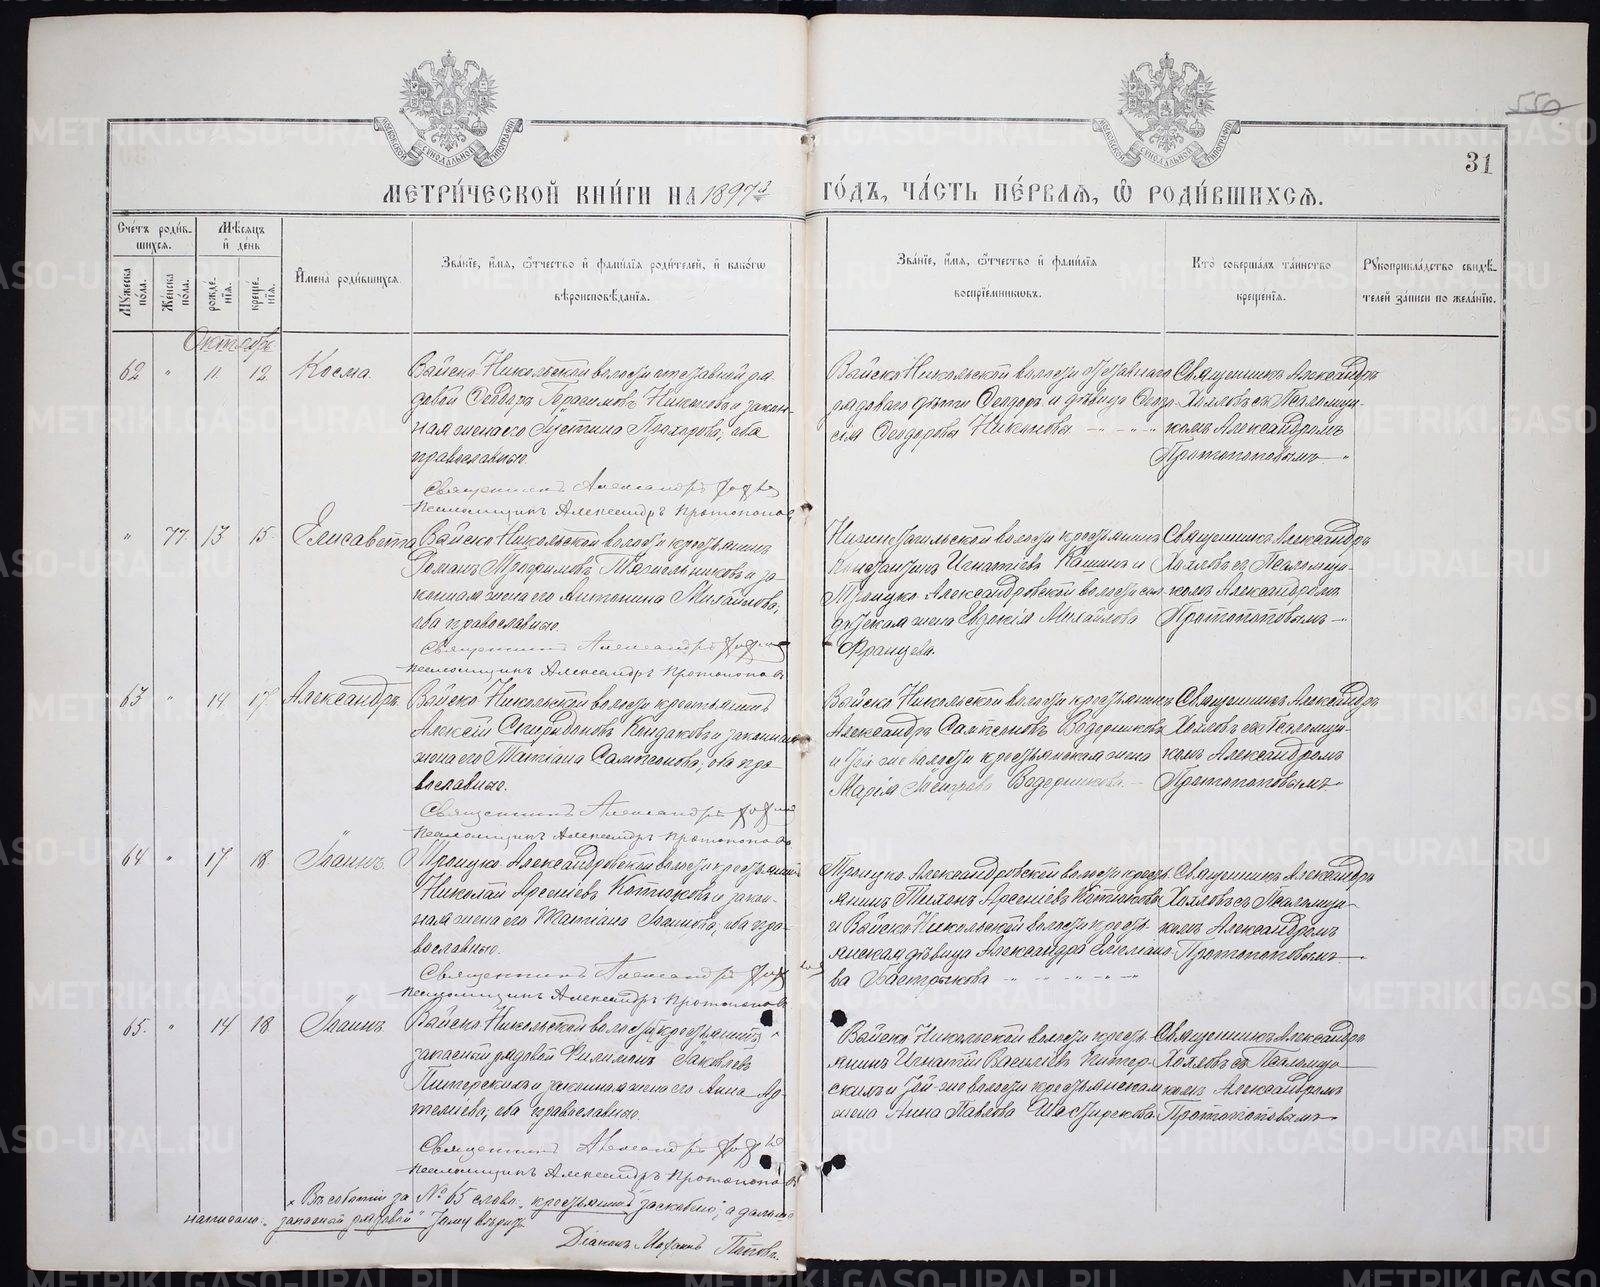 550
31
МЕТРИ́ЧЕСКОЙ КНИ́ГИ НА 1897й ГО́ДЪ, ЧА́СТЬ ПЕ́РВАЯ, Ѽ РОДИ́ВШИХСЯ.
Сче́тъ роди́вшихся.
Му́жеска по́ла.
Же́нска по́ла.
Мѣ́сяцъ и де́нь
рожде́нія.
креще́нія.
Имена̀ роди́вшихся.
Зва́ніе, и́мя, ѻ́тчество и фами́лія роди́телей, и како́гѡ
вѣроисповѣ́данія.
Зва́ніе, и́мя, ѻ́тчество и фами́лія
воспріе́мникѡвъ.
Кто̀ соверша́лъ та́инство
креще́нія.
Рꙋкоприкла́дство свидѣ́-
телей за́писи по жела́нію.
Октябрь
62 " 11 12 Косма.
Байско Никольской волости отставной ря-
довой Ѳеодоръ Герасимовъ Никоновъ и закон-
ная жена его Іустина Прохорова, оба
православные.
Священникъ Александръ
Псаломщикъ Александръ Протопоповъ
Байско Никольской волости отставнаго
рядоваго дѣти Ѳеодоръ и дѣвица
Ѳеодоровы Никоновы
Священникъ Александръ
Хохловъ съ Псаломщи-
комъ Александромъ
Протопоповымъ
" 77 13 15 Елисавета
Байско Никольской волости крестьянинъ
Романъ Трофимовъ и за-
конная жена его Антонина Михайлова,
оба православные.
Священникъ Александръ
Псаломщикъ Александръ Протопоповъ
Нижнетагильской волости крестьянинъ
Константинъ Игнатіевъ Кашинъ и
Троицко Александровской волости сол-
датская жена Евдокія Михайлова
Францева.
Священникъ Александръ
Хохловъ съ Псаломщи-
комъ Александромъ
Протопоповымъ
63 " 14 17 Александръ
Байско Никольской волости крестьянинъ
Алексѣй Спиридоновъ Кондаковъ и законная
жена его Татіана Сампсонова, оба пра-
вославные.
Священникъ Александръ
Псаломщикъ Александръ Протопоповъ
Байско Никольской волости крестьянинъ
Александръ Сампсоновъ Ведерниковъ
и той же волости крестьянская жена
Марія Ведерникова
Священникъ Александръ
Хохловъ съ Псаломщи-
комъ Александромъ
Протопоповымъ
64 " 17 18 Іоаннъ.
Троицко Александровской волости крестьянинъ
Николай Арсеніевъ Котюковъ и закон-
ная жена его Татіана Іоаннова, оба пра-
вославные.
Священникъ Александръ
Псаломщикъ Александръ Протопоповъ
Троицко Александровской волости кресть-
янинъ Тихонъ Арсеніевъ Котюковъ
и Байско Никольской волости кресть-
янская дѣвица Александра
ва Бастрыкова
Священникъ Александръ
Хохловъ съ Псаломщи-
комъ Александромъ
Протопоповымъ
65. " 14 18 Іоаннъ
Байско Никольской волости крестьянинъ
запасный рядовой Филимонъ Іаковлевъ
Питерскихъ и законная жена его Анна Ар-
теміева, оба православные.
Священникъ Александръ
Псаломщикъ Александръ Протопоповъ
Байско Никольской волости кресть-
янинъ Игнатій Васильевъ Питер-
скихъ и той же волости крестьянская
жена Анна Павлова
Священникъ Александръ
Хохловъ съ Псаломщи-
комъ Александромъ
Протопоповымъ
× Въ событіи за № 65 слово „крестьянинъ" заскоблено, а дальше
написано: „запасной рядовой" тому вѣрить
Діаконъ Поповъ.